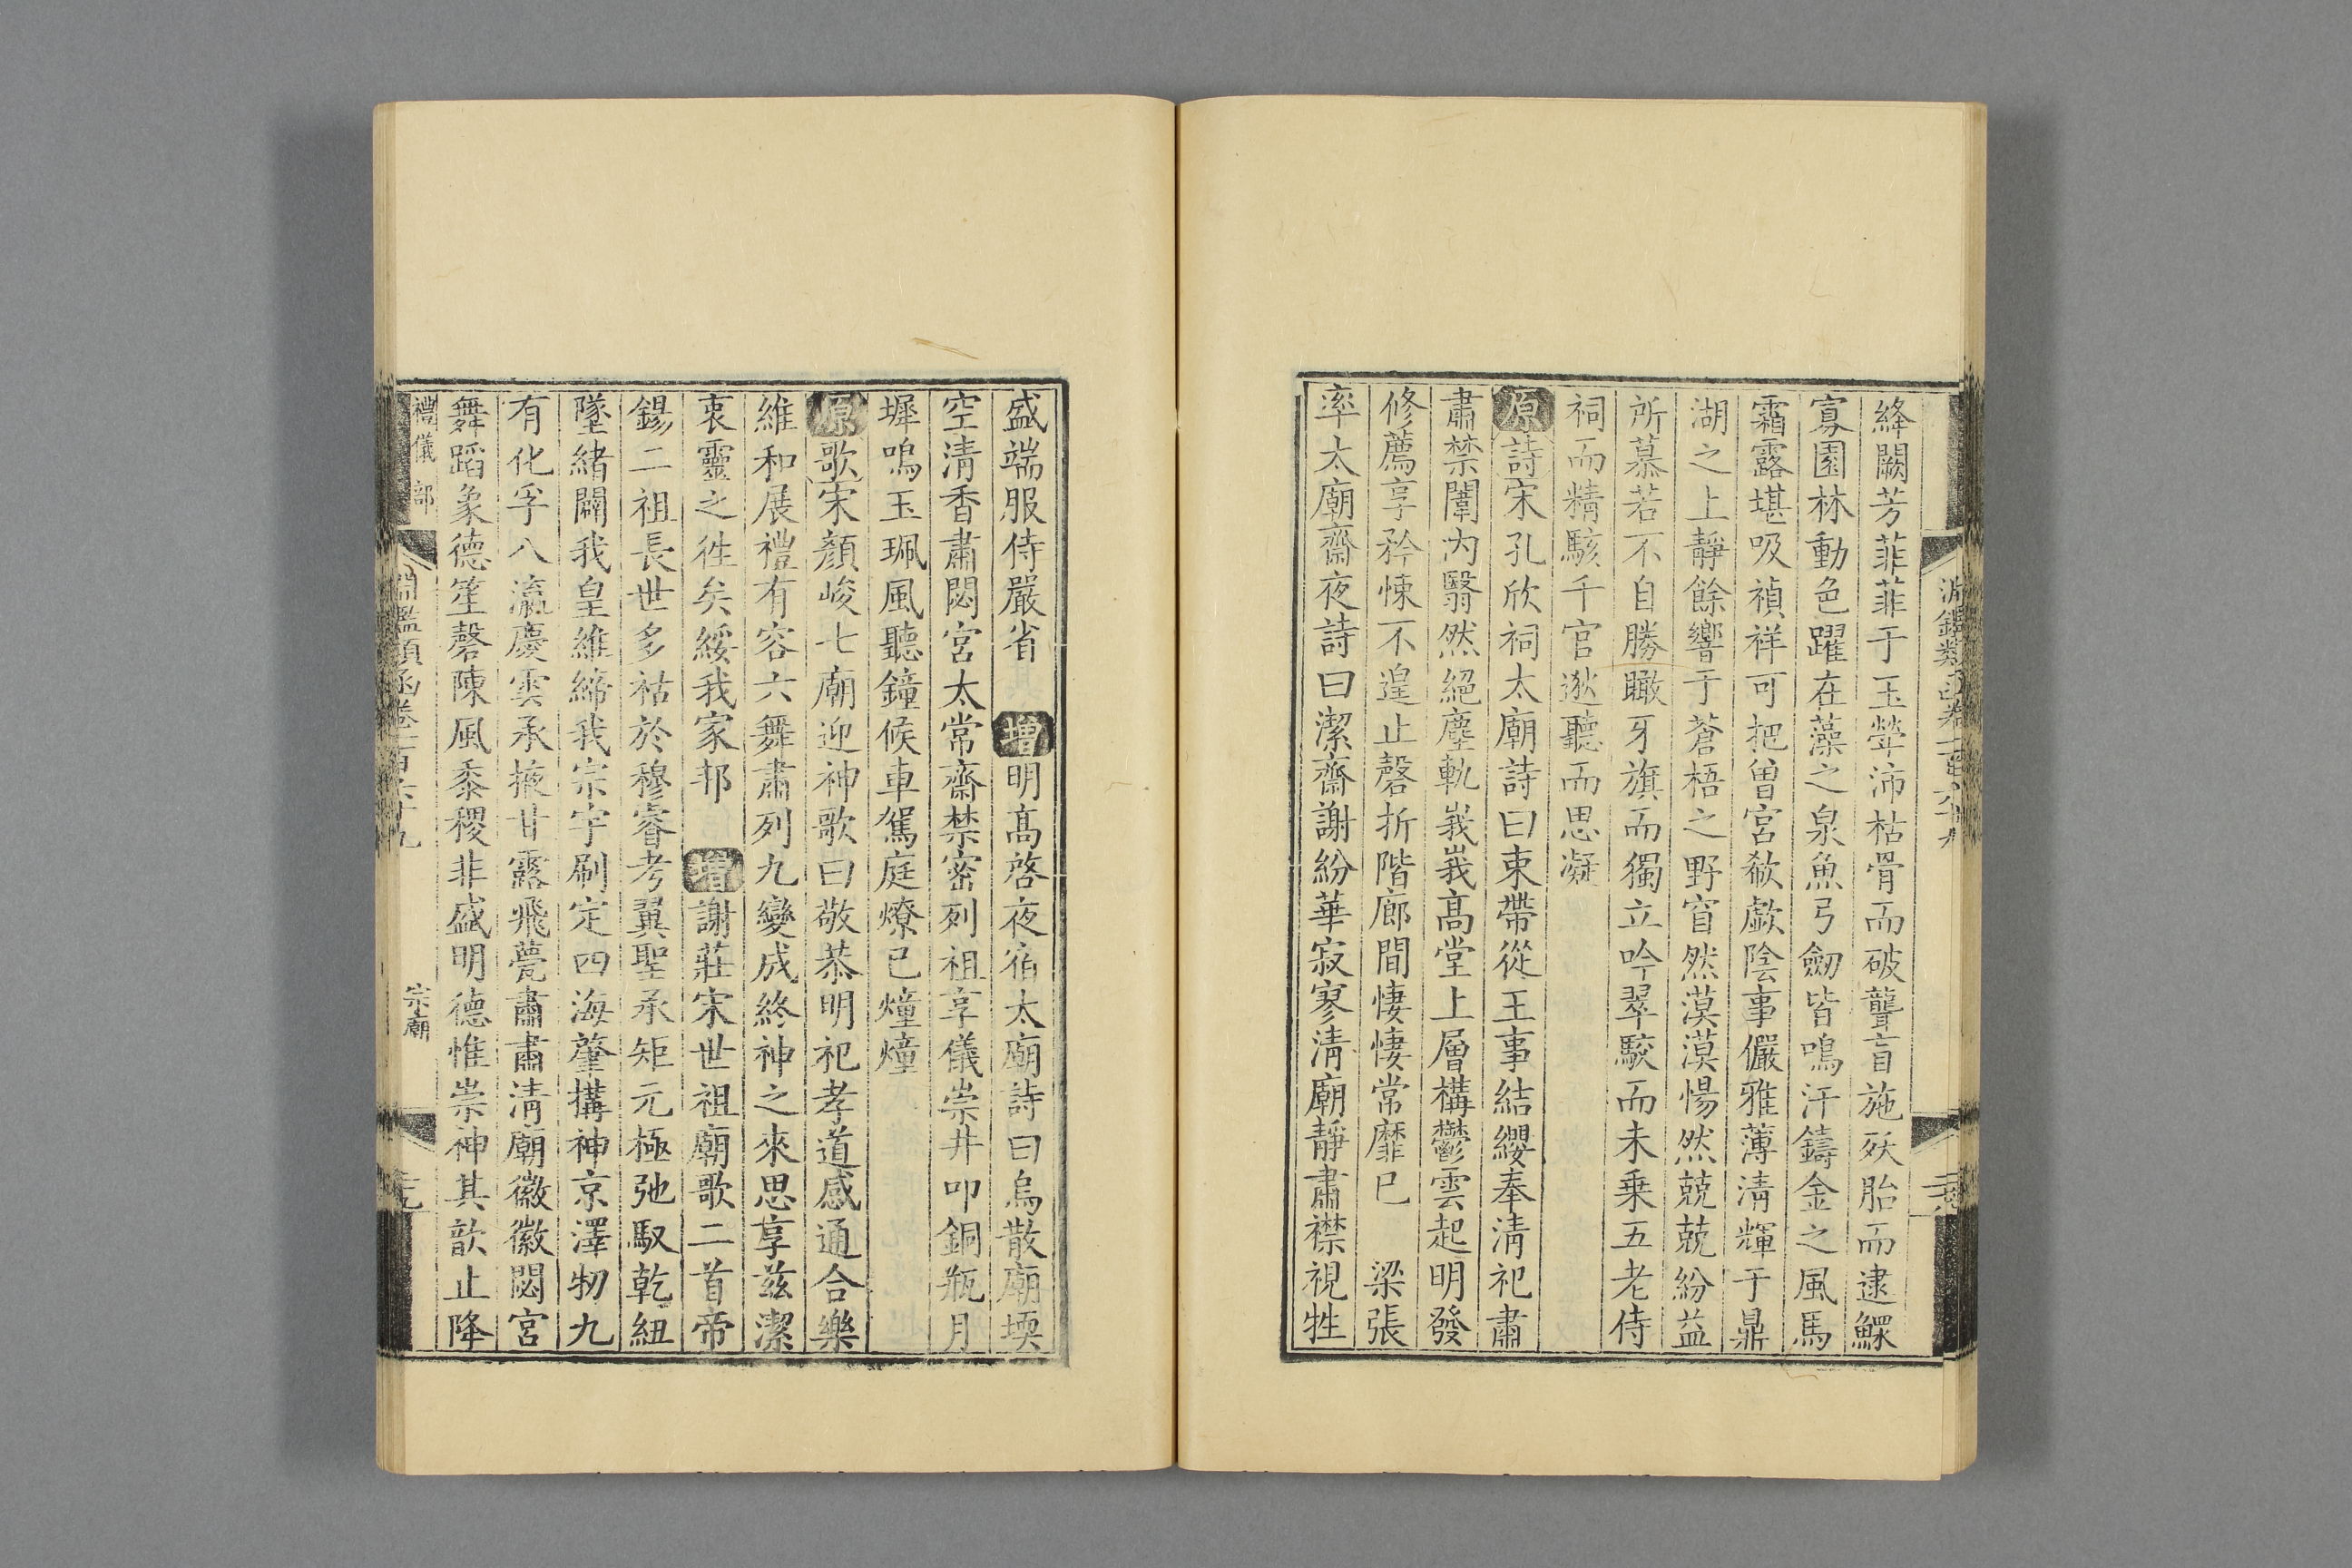 絳闕芳菲菲于玉犖沛枯骨而破聾盲施殀胎而逮鰥
寡園林動色躍在藻之泉魚弓劒皆鳴汗鑄金之風馬
霜露堪吸禎祥可把曾宮欷歔陰事儼雅薄清輝于鼎
湖之上靜餘響于蒼梧之野窅然漠漠惕然兢兢紛益
所慕若不自勝瞰牙旗而獨立吟翠駮而未乗五老侍
祠而精駭千官逖聽而思凝
原詩宋孔欣祠太廟詩曰束帶從王事結纓奉清祀肅
肅禁闈内翳然絕塵軌峩峩髙堂上層構鬱雲起明發
修薦享矜悚不遑止磬折階廊間悽悽常靡已　梁張
率太廟齋夜詩曰潔齋謝紛華寂寥清廟靜肅襟視牲
盛端服侍嚴省　增明髙啓夜宿太廟詩曰烏散廟堧
空清香肅閟宮太常齋禁密列祖享儀崇井叩銅瓶月
墀鳴玉珮風聽鐘候車駕庭燎已爞爞
原歌宋顏峻七廟迎神歌曰敬恭明祀孝道感通合樂
維和展禮有容六舞肅列九變成終神之來思享兹潔
衷靈之徃矣綏我家邦　增謝莊宋世祖廟歌二首帝
錫二祖長世多祜於穆睿考翼聖承矩元極弛馭乾紐
墜緒闢我皇維締我宗宇刷定四海肇構神京澤牣九
有化孚八瀛慶雲承掖甘露飛甍肅肅清廟徽徽閟宮
舞蹈象德笙磬陳風黍稷非盛明德惟崇神其歆止降
禮儀部
淵鑑類函卷一百六十九
宗廟